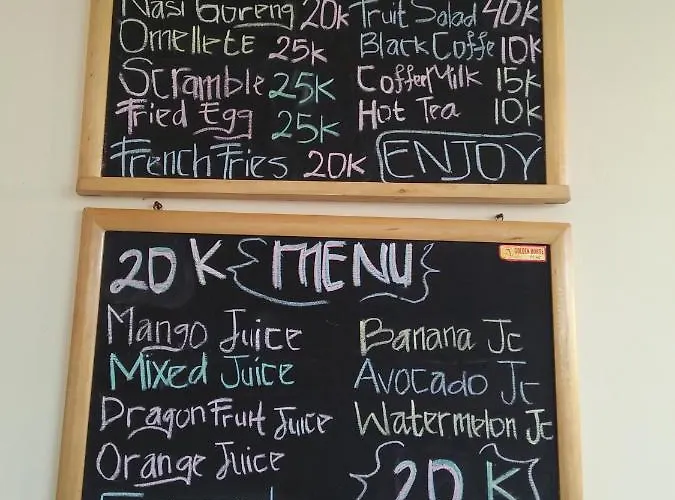 Nasi Goreng 20k
Omellete 25k
Scramble 25k
Fried Egg 25k
French Fries 20k
Fruit Salad 40k
Black Coffe 10k
Coffee Milk 15k
Hot Tea 10k
ENJOY
20 K {MENU}
GOLDEN HORSE
Mango Juice
Mixed Juice
Dragon Fruit Juice
Orange Juice
Banana Jc
Avocado Jc
Watermelon Jc
20 K